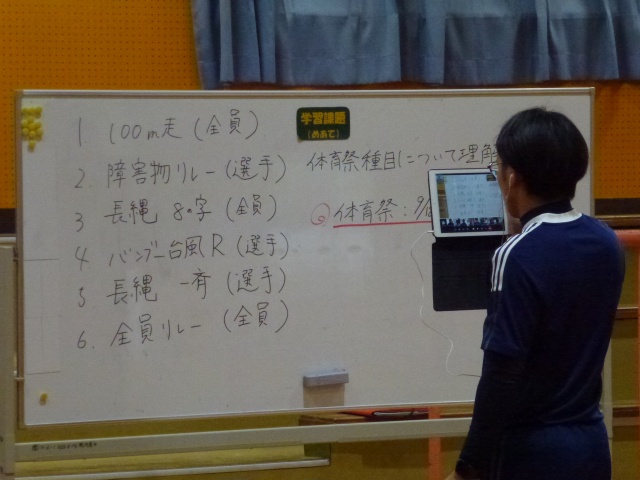 1 100m走 (全員)
2. 障害物リレー (選手)
3 長縄 8の字 (全員)
4 バンブー台風R (選手)
5 長縄 一斉 (選手)
6. 全員リレー (全員)
学習課題
(めあて)
体育祭種目について理解
体育祭: 9/